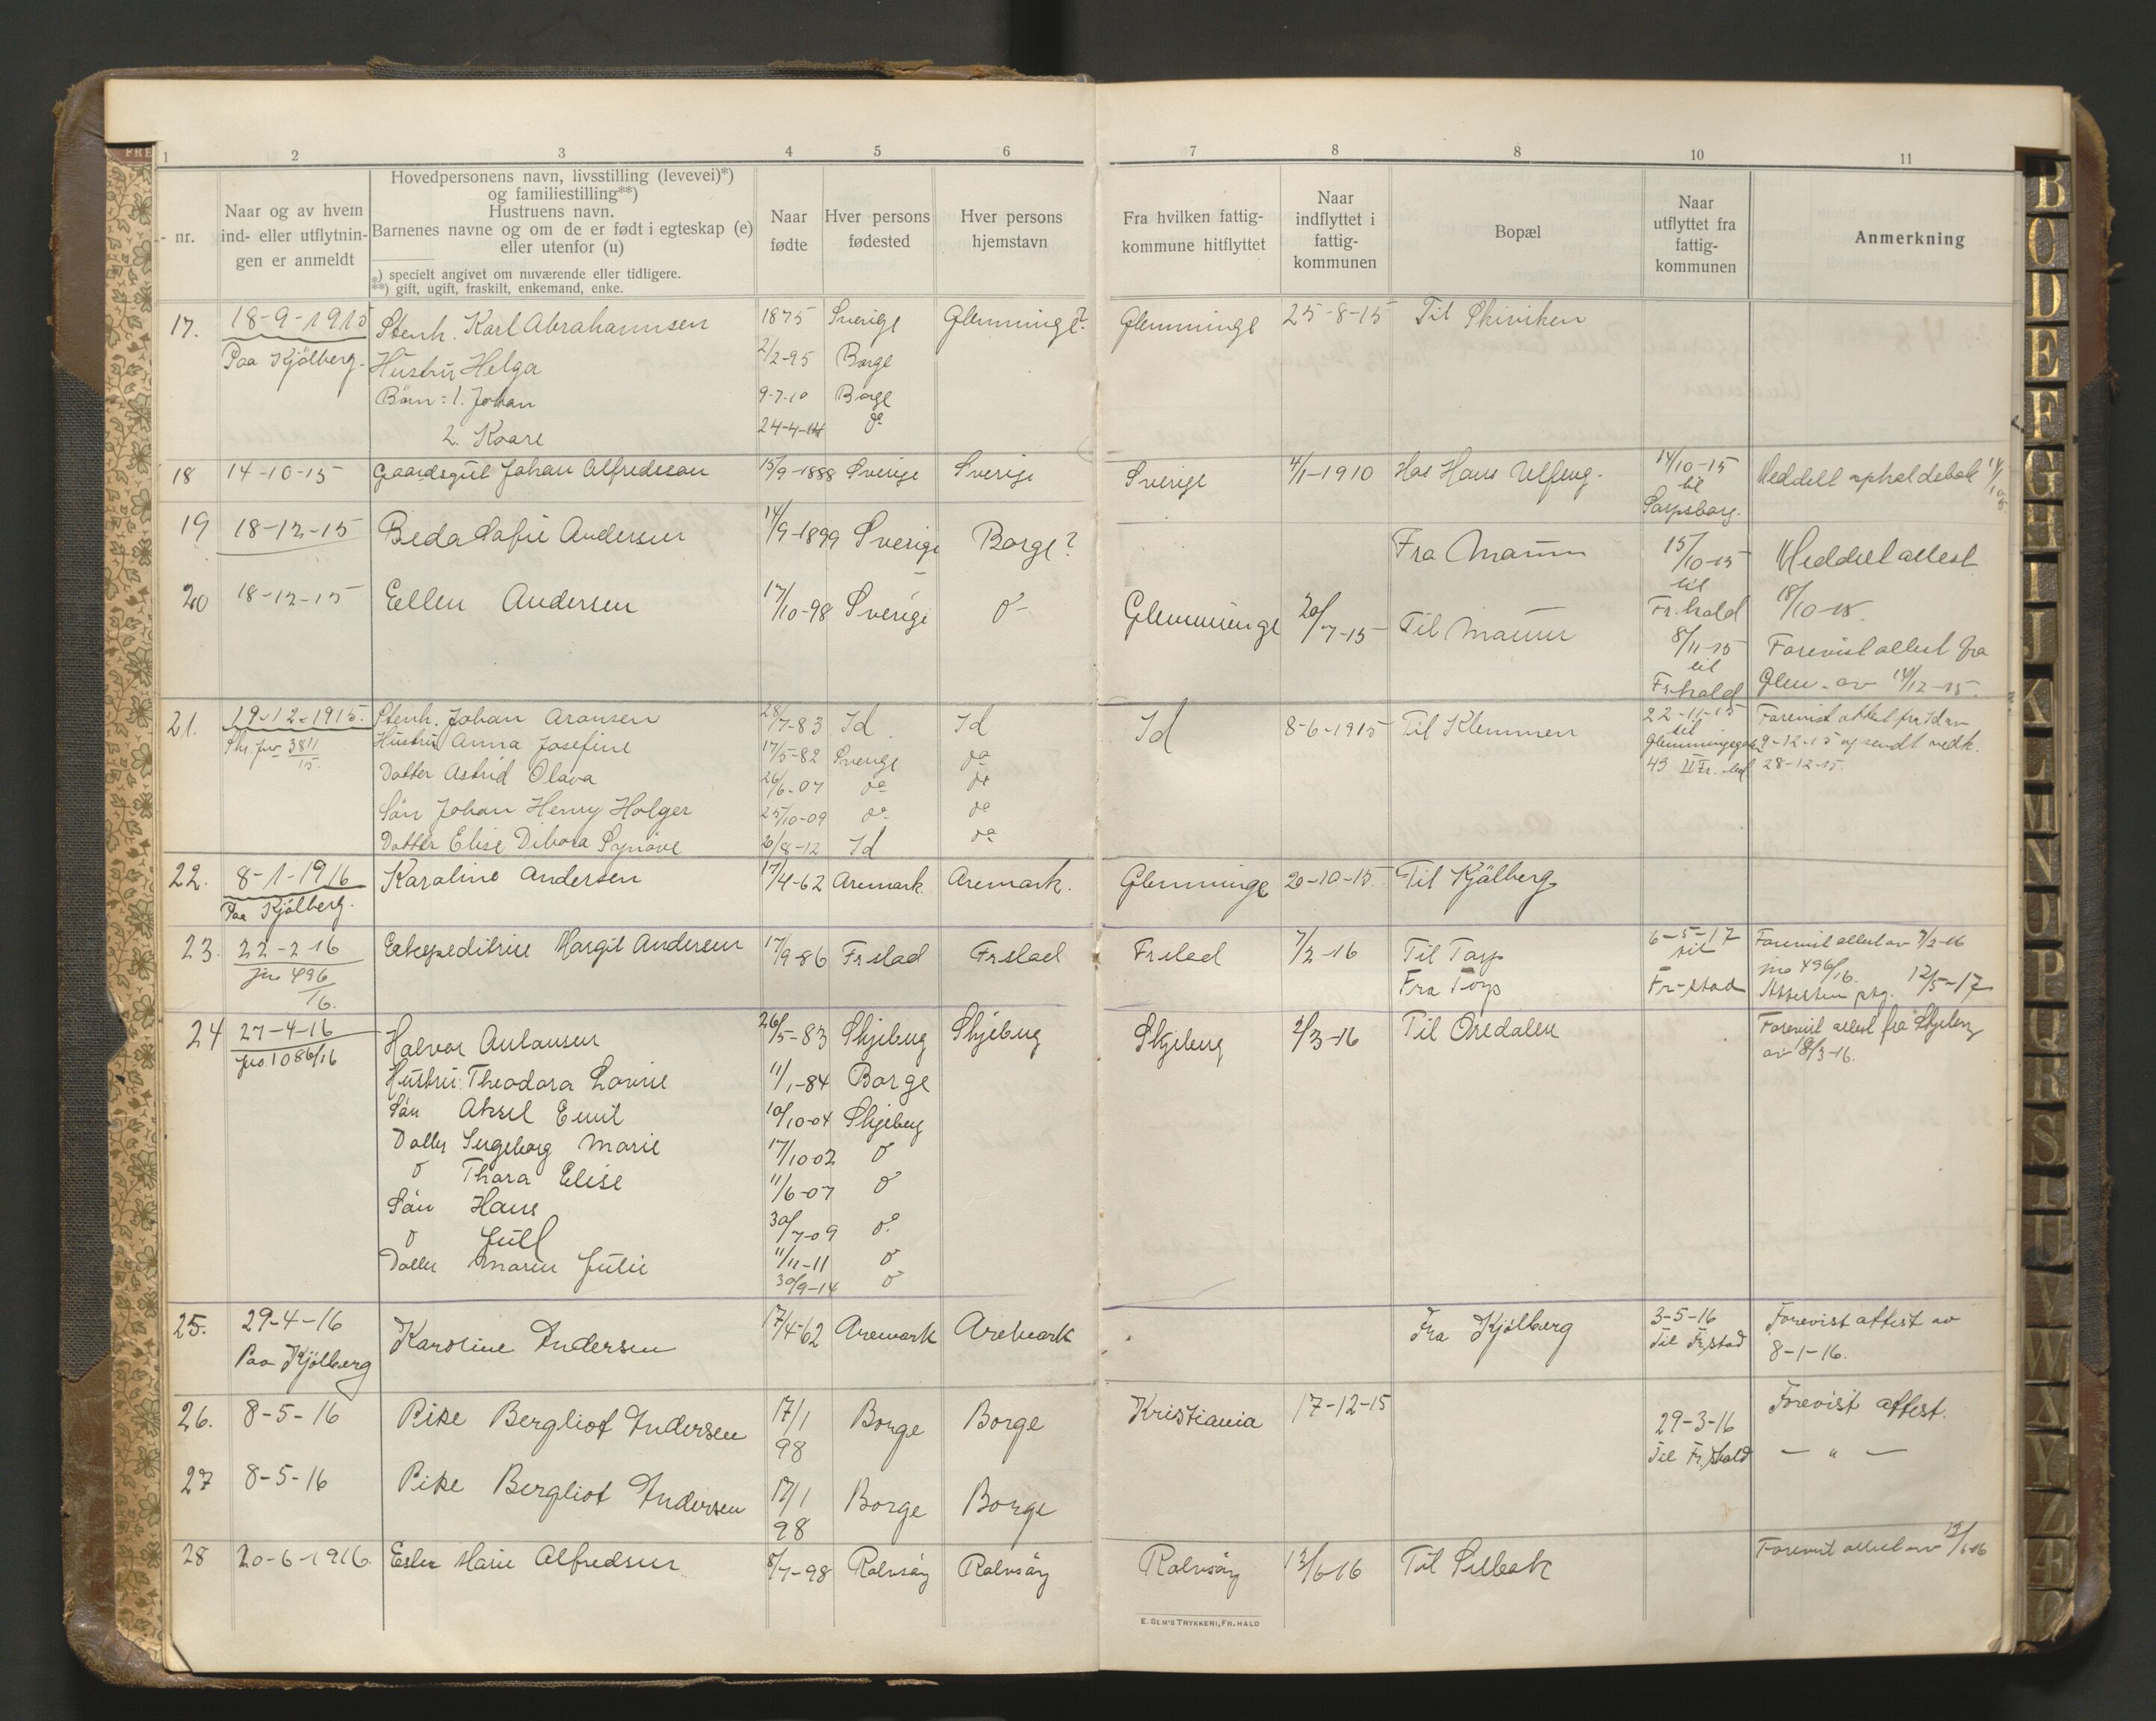 1 2 3 4 5 6 7 8 8 10 11
- nr.
Naar og av hvem
ind- eller utflytnin-
gen er anmeldt
Hovedpersonens navn, livsstilling (levevei)*)
og familiestilling**)
Hustruens navn.
Barnenes navne og om de er født i egteskap (e)
eller utenfor (u)
*) specielt angivet om nuværende eller tidligere.
**) gift, ugift, fraskilt, enkemand, enke.
Naar
fødte
Hver persons
fødested
Hver persons
hjemstavn
Fra hvilken fattig-
kommune hitflyttet
Naar
indflyttet i
fattig-
kommunen
Bopæl
Naar
utflyttet fra
fattig-
kommunen
Anmerkning
17. 18-9-1915 Stenh. Karl Abrahamsen 1875 Sverige Glemminge? Glemminge 25-8-15 Til Skiviken
Paa Kjölberg. Hustru Helga 2/2-95 Borge
Börn: 1. Johan 9-7-10 Borge
2. Kaare 24-4-14 do
18 14-10-15 Gaardsgut Johan Alfredsson 15/9-1888 Sverige Sverige Sverige 4/1-1910 Hos Hans Ulfeng. 14/10-15 Meddelt opholdsbok 14/10-15
til
Sarpsborg.
19 18-12-15 Beda Sofie Andersen 14/9-1899 Sverige Borge? Fra Maum 15/10-15 Meddelt attest
til 18/10-15.
Fr.hald
20 18-12-15 Ellen Andersen 17/10-98 Sverige do Glemminge 20/7-15 Til Maum 8/11-15 Forevist attest fra
til Glem. av 14/12-15.
Fr.hald
21. 19-12-1915. Stenh. Johan Aronsen 28/7-83 Id Id Id 8-6-1915 Til Klemmen 22-11-15 Forevist attest fra Id av
3811/15. Hustru Anna Josefine 17/5-82 Sverige do til Glemmingegade 9-12-15 og sendt vedk.
Datter Astrid Olava 26/6-07 do do 43 II Fr. 28-12-15.
Sön Johan Henry Holger 25/10-09 do do
Datter Elise Dibora Synöve 6/8-12 Id do
22. 8-1-1916 Karoline Andersen 17/4-62 Aremark Aremark. Glemminge 20-10-15. Til Kjölberg
Paa Kjölberg.
23. 22-2-16 Ekspeditrice Margit Andersen 17/9-86 Frstad Frstad Frstad 7/2-16 Til Torp 6-5-17 Forevist attest av 7/2-16
jno 496/16. Fra Torp til Fr-stad jno 496/16.
Attesten 12/5-17
24 27-4-16 Halvor Antonsen 26/5-83 Skjeberg Skjeberg Skjeberg 2/3-16 Til Oredalen Forevist attest fra Skjeberg
jno. 1086/16 Hustru: Theodora Lovise 11/1-84 Borge av 18/3-16.
Sön Aksel Emil 10/10-04 Skjeberg
Datter Ingeborg Marie 17/10 02 do
do Thora Elise 11/6-07 do
Sön Hans 30/7-09 do
do Juell 11/11-11 do
Datter Maren Julie 30/9-14 do
25. 29-4-16 Karoline Andersen 17/4-62 Aremark Aremark Fra Kjölberg 3-5-16 Forevist attest av
Paa Kjölberg Til Fr.stad 8-1-16.
26. 8-5-16 Pike Bergliot Andersen 17/1 98 Borge Borge Kristiania 17-12-15 Forevist attest.
27 8-5-16 Pike Bergliot Andersen 17/1 98 Borge Borge 29-3-16 — " —
Til Fr.hald
28 20-6-1916. Ester Marie Alfredsen 8/7-98 Rolvsöy Rolvsöy Rolvsöy 13/6-16 Til Lilleak Forevist attest av 13/6-16
E. SEM'S TRYKKERI, FR.HALD
B
C
D
E
F
G
H
I
J
K
L
M
N
O
P
Q
R
S
T
U
V
W
X
Y
Z
Æ
Ø